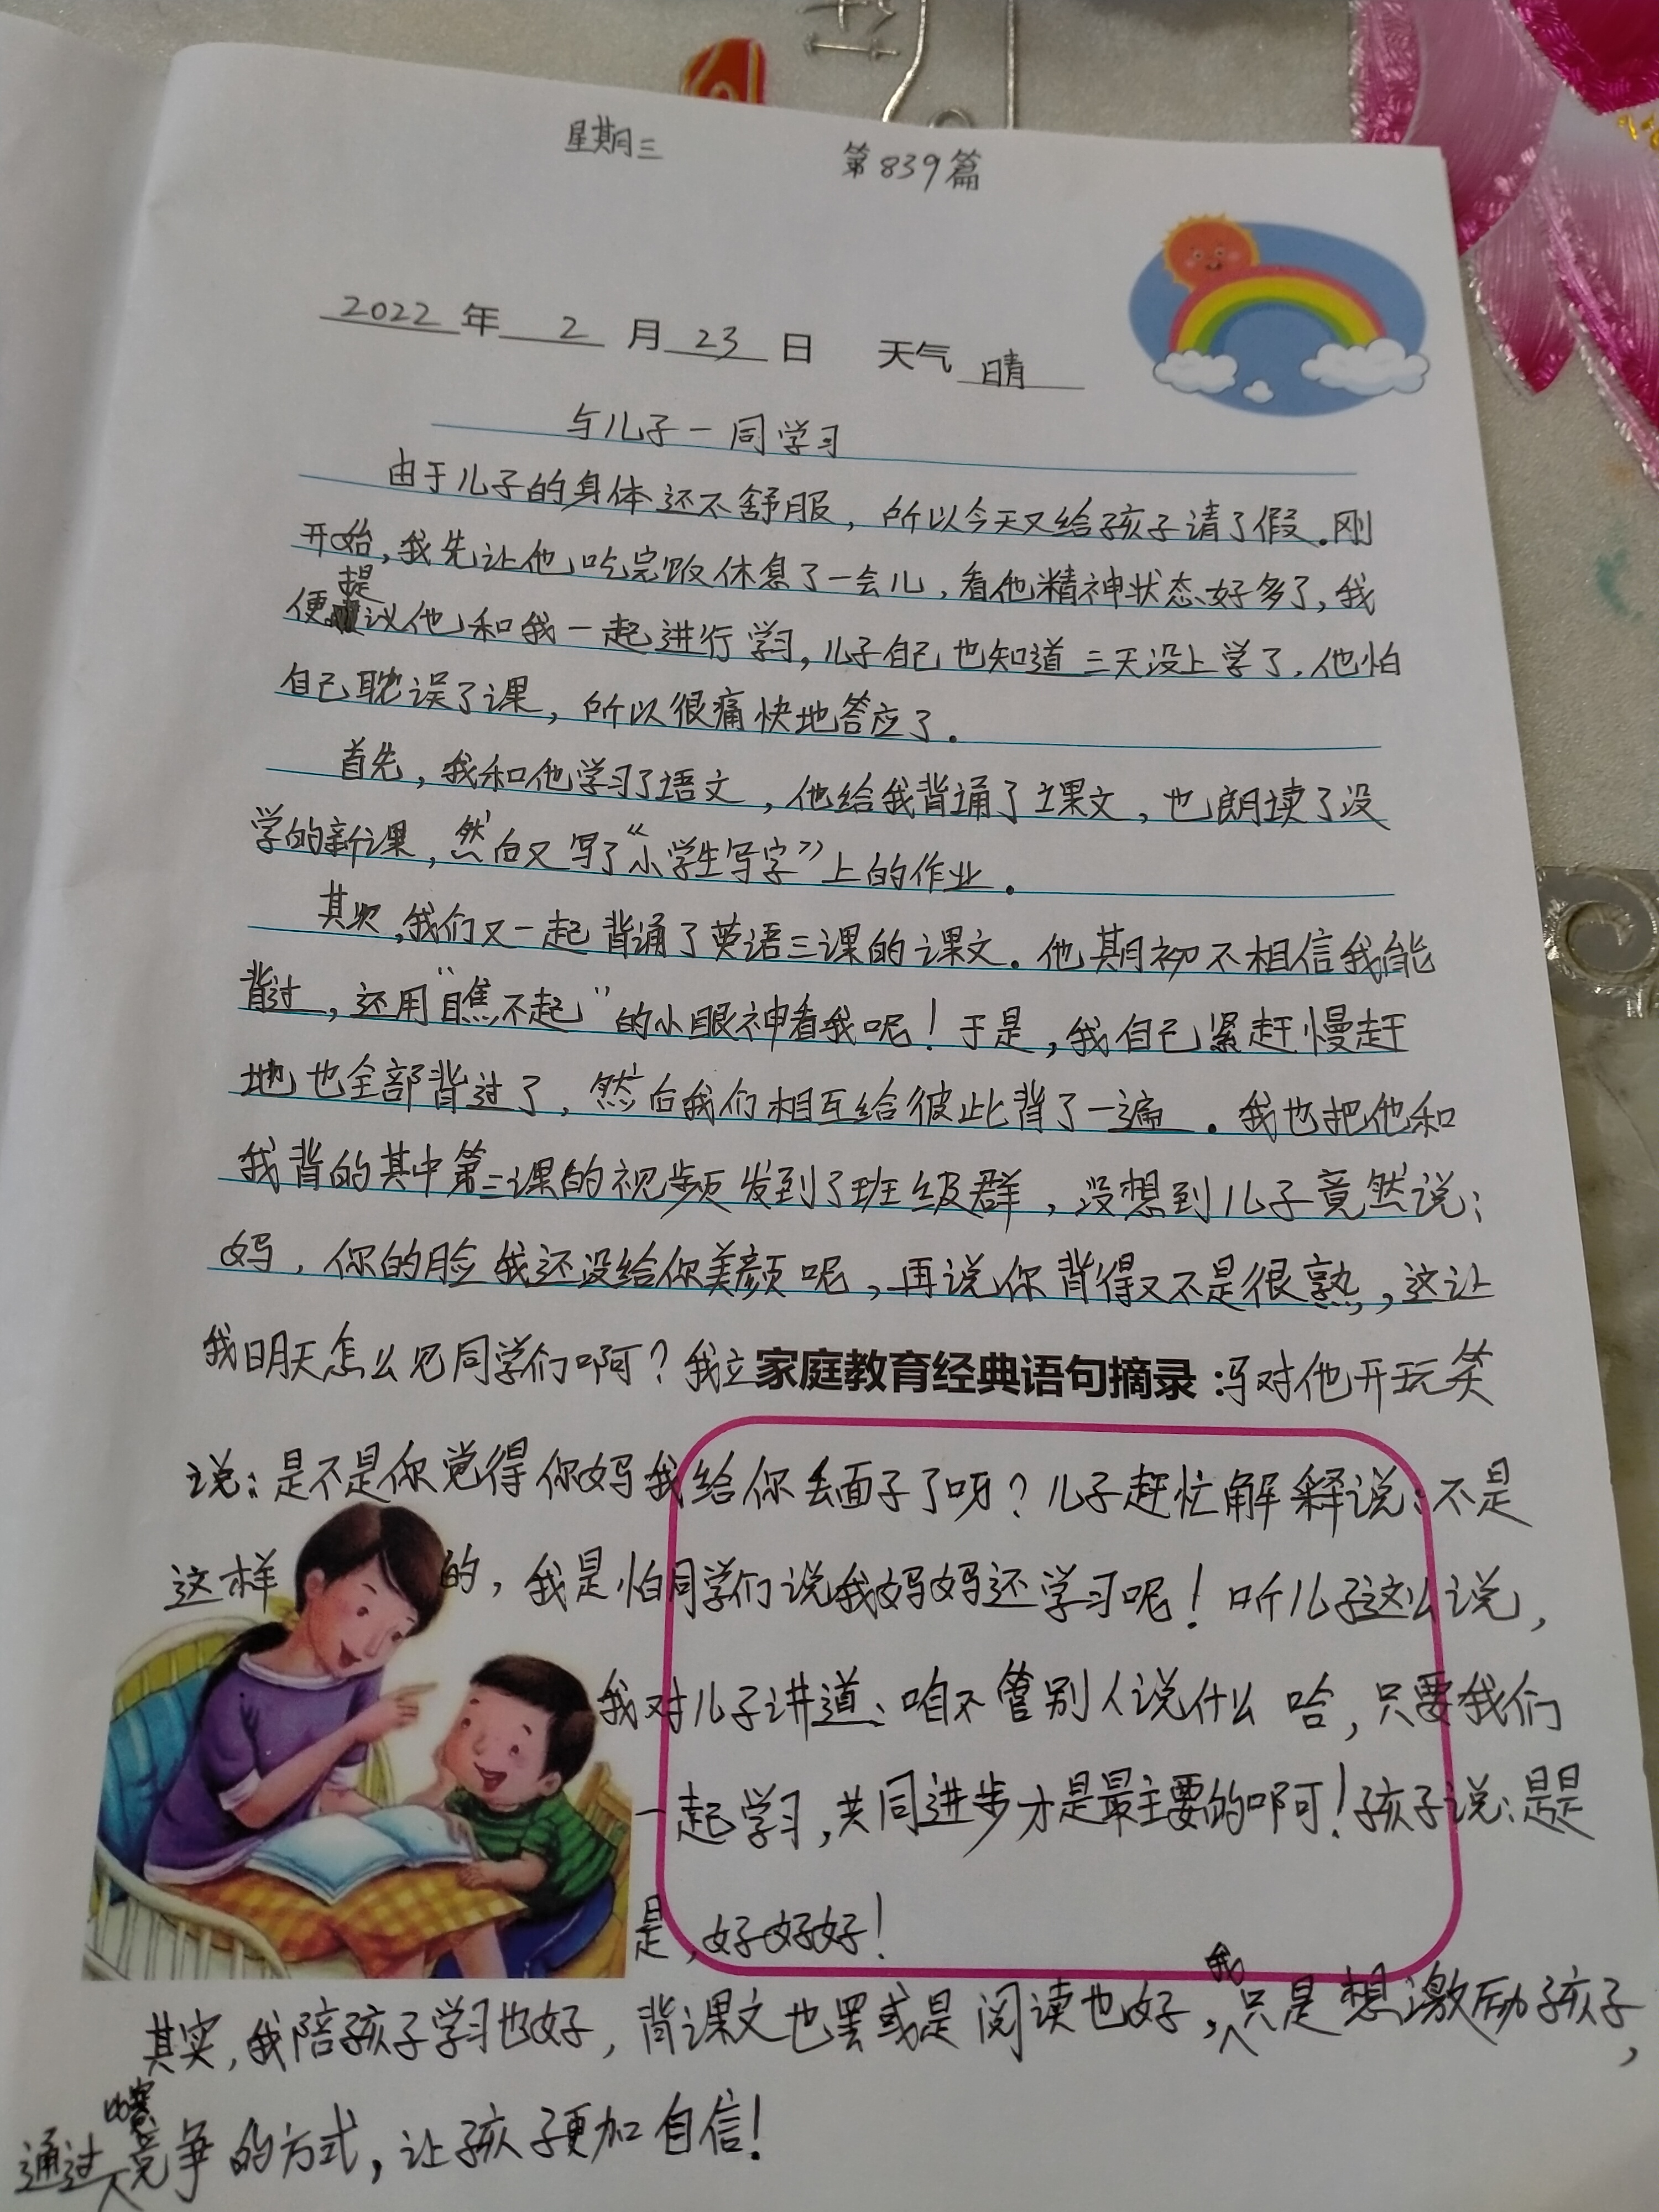 星期三 第839篇
2022年 2 月 23 日 天气 晴
与儿子一同学习
由于儿子的身体还不舒服，所以今天又给孩子请了假。刚
开始，我先让他吃完饭休息了一会儿，看他精神状态好多了，我
便提议他和我一起进行学习，儿子自己也知道三天没上学了，他怕
自己耽误了课，所以很痛快地答应了。
首先，我和他学习了语文，他给我背诵了课文，也朗读了没
学的新课，然后又写了“小学生写字”上的作业。
其次，我们又一起背诵了英语三课的课文。他期初不相信我能
背过，还用“瞧不起”的小眼神看我呢！于是，我自己紧赶慢赶
地也全部背过了，然后我们相互给彼此背了一遍。我也把他和
我背的其中第三课的视频发到了班级群，没想到儿子竟然说：
妈，你的脸我还没给你美颜呢，再说你背得又不是很熟，这让
我明天怎么见同学们啊？我立家庭教育经典语句摘录：马对他开玩笑
说：是不是你觉得你妈我给你丢面子了呀？儿子赶忙解释说：不是
这样的，我是怕同学们说我妈妈还学习呢！听儿子这么说，
我对儿子讲道：咱不管别人说什么哈，只要我们
一起学习，共同进步才是最主要的啊！孩子说：是是
是，好好好！
其实，我陪孩子学习也好，背课文也罢或是阅读也好，我只是想激励孩子，
通过比赛竞争的方式，让孩子更加自信！